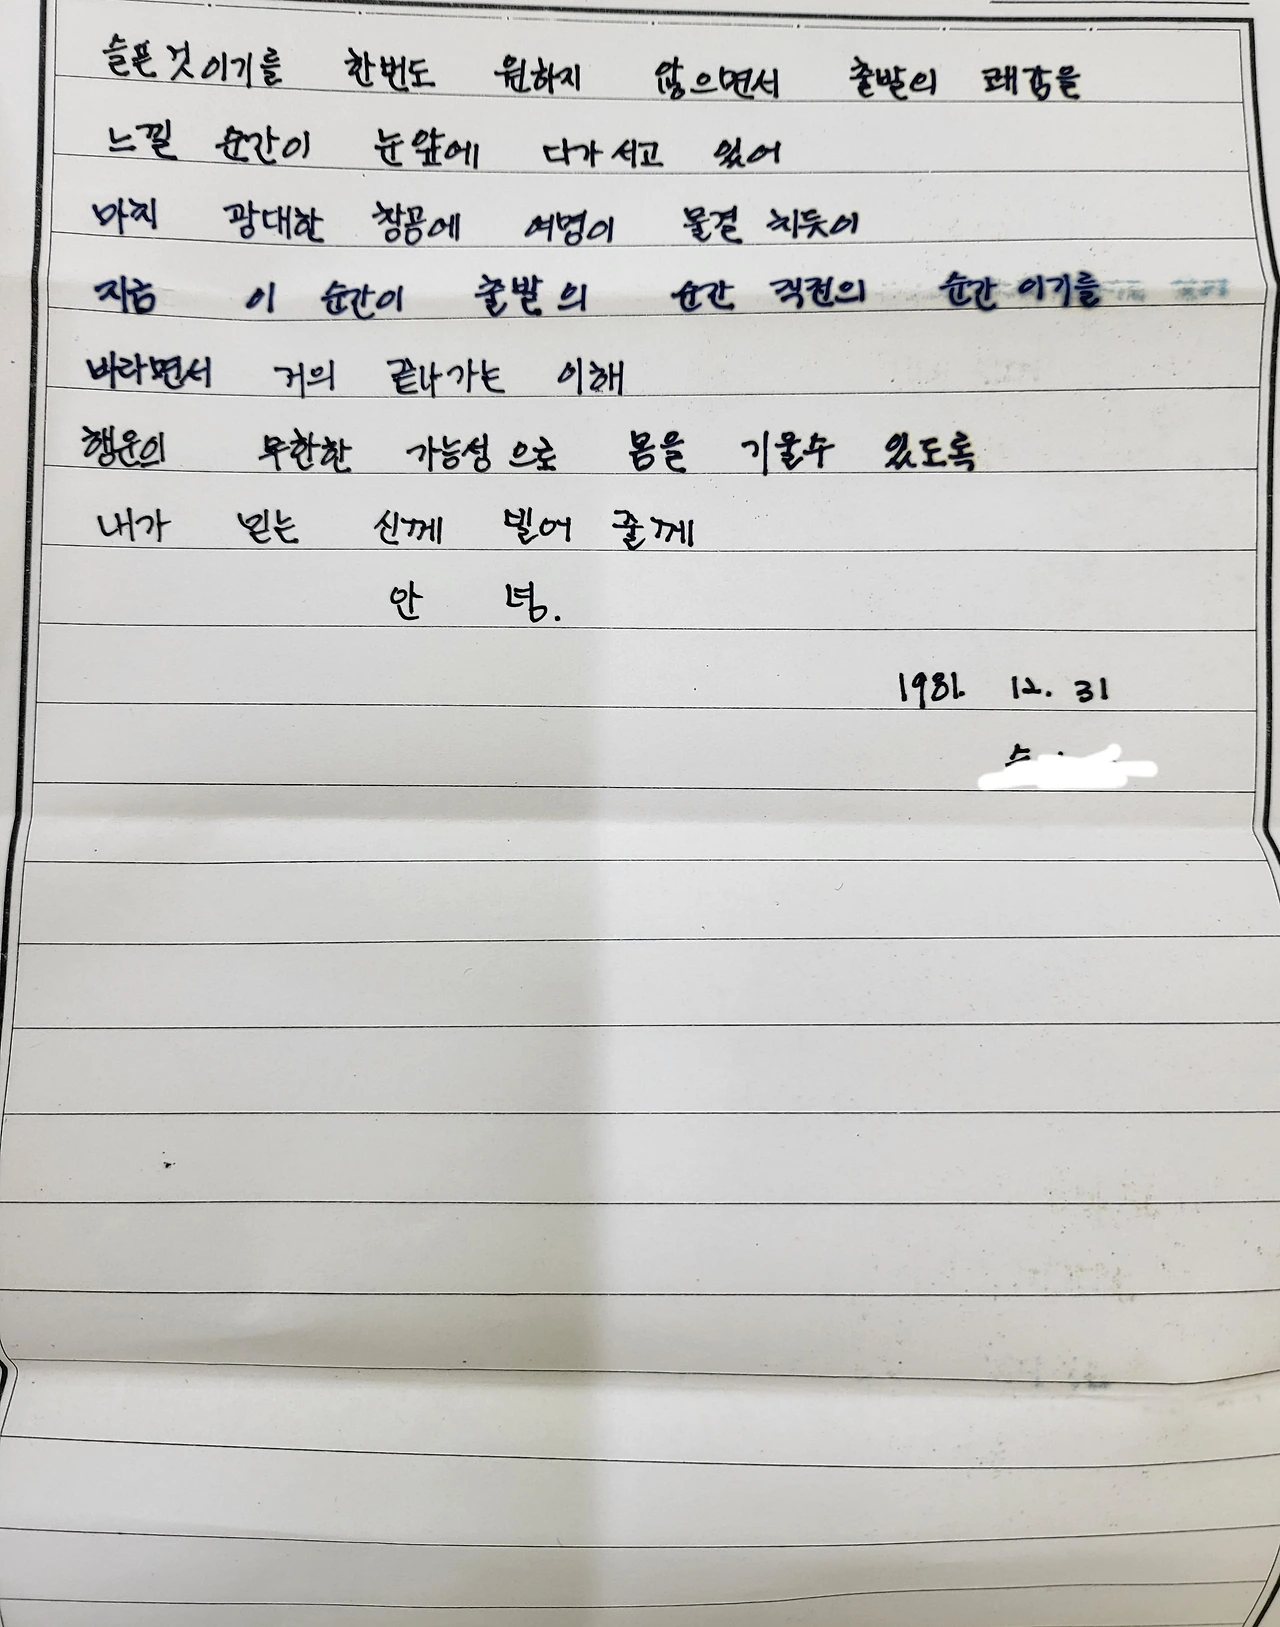 슬픈것이기를 한번도 원하지 않으면서 출발의 쾌감을
느낄 순간이 눈앞에 다가서고 있어
마치 광대한 창공에 여명이 물결 치듯이
지금 이 순간이 출발의 순간 직전의 순간이기를
바라면서 거의 끝나가는 이해
행운의 무한한 가능성으로 몸을 기울수 있도록
내가 믿는 신께 빌어 줄께
안 녕.
1981. 12. 31